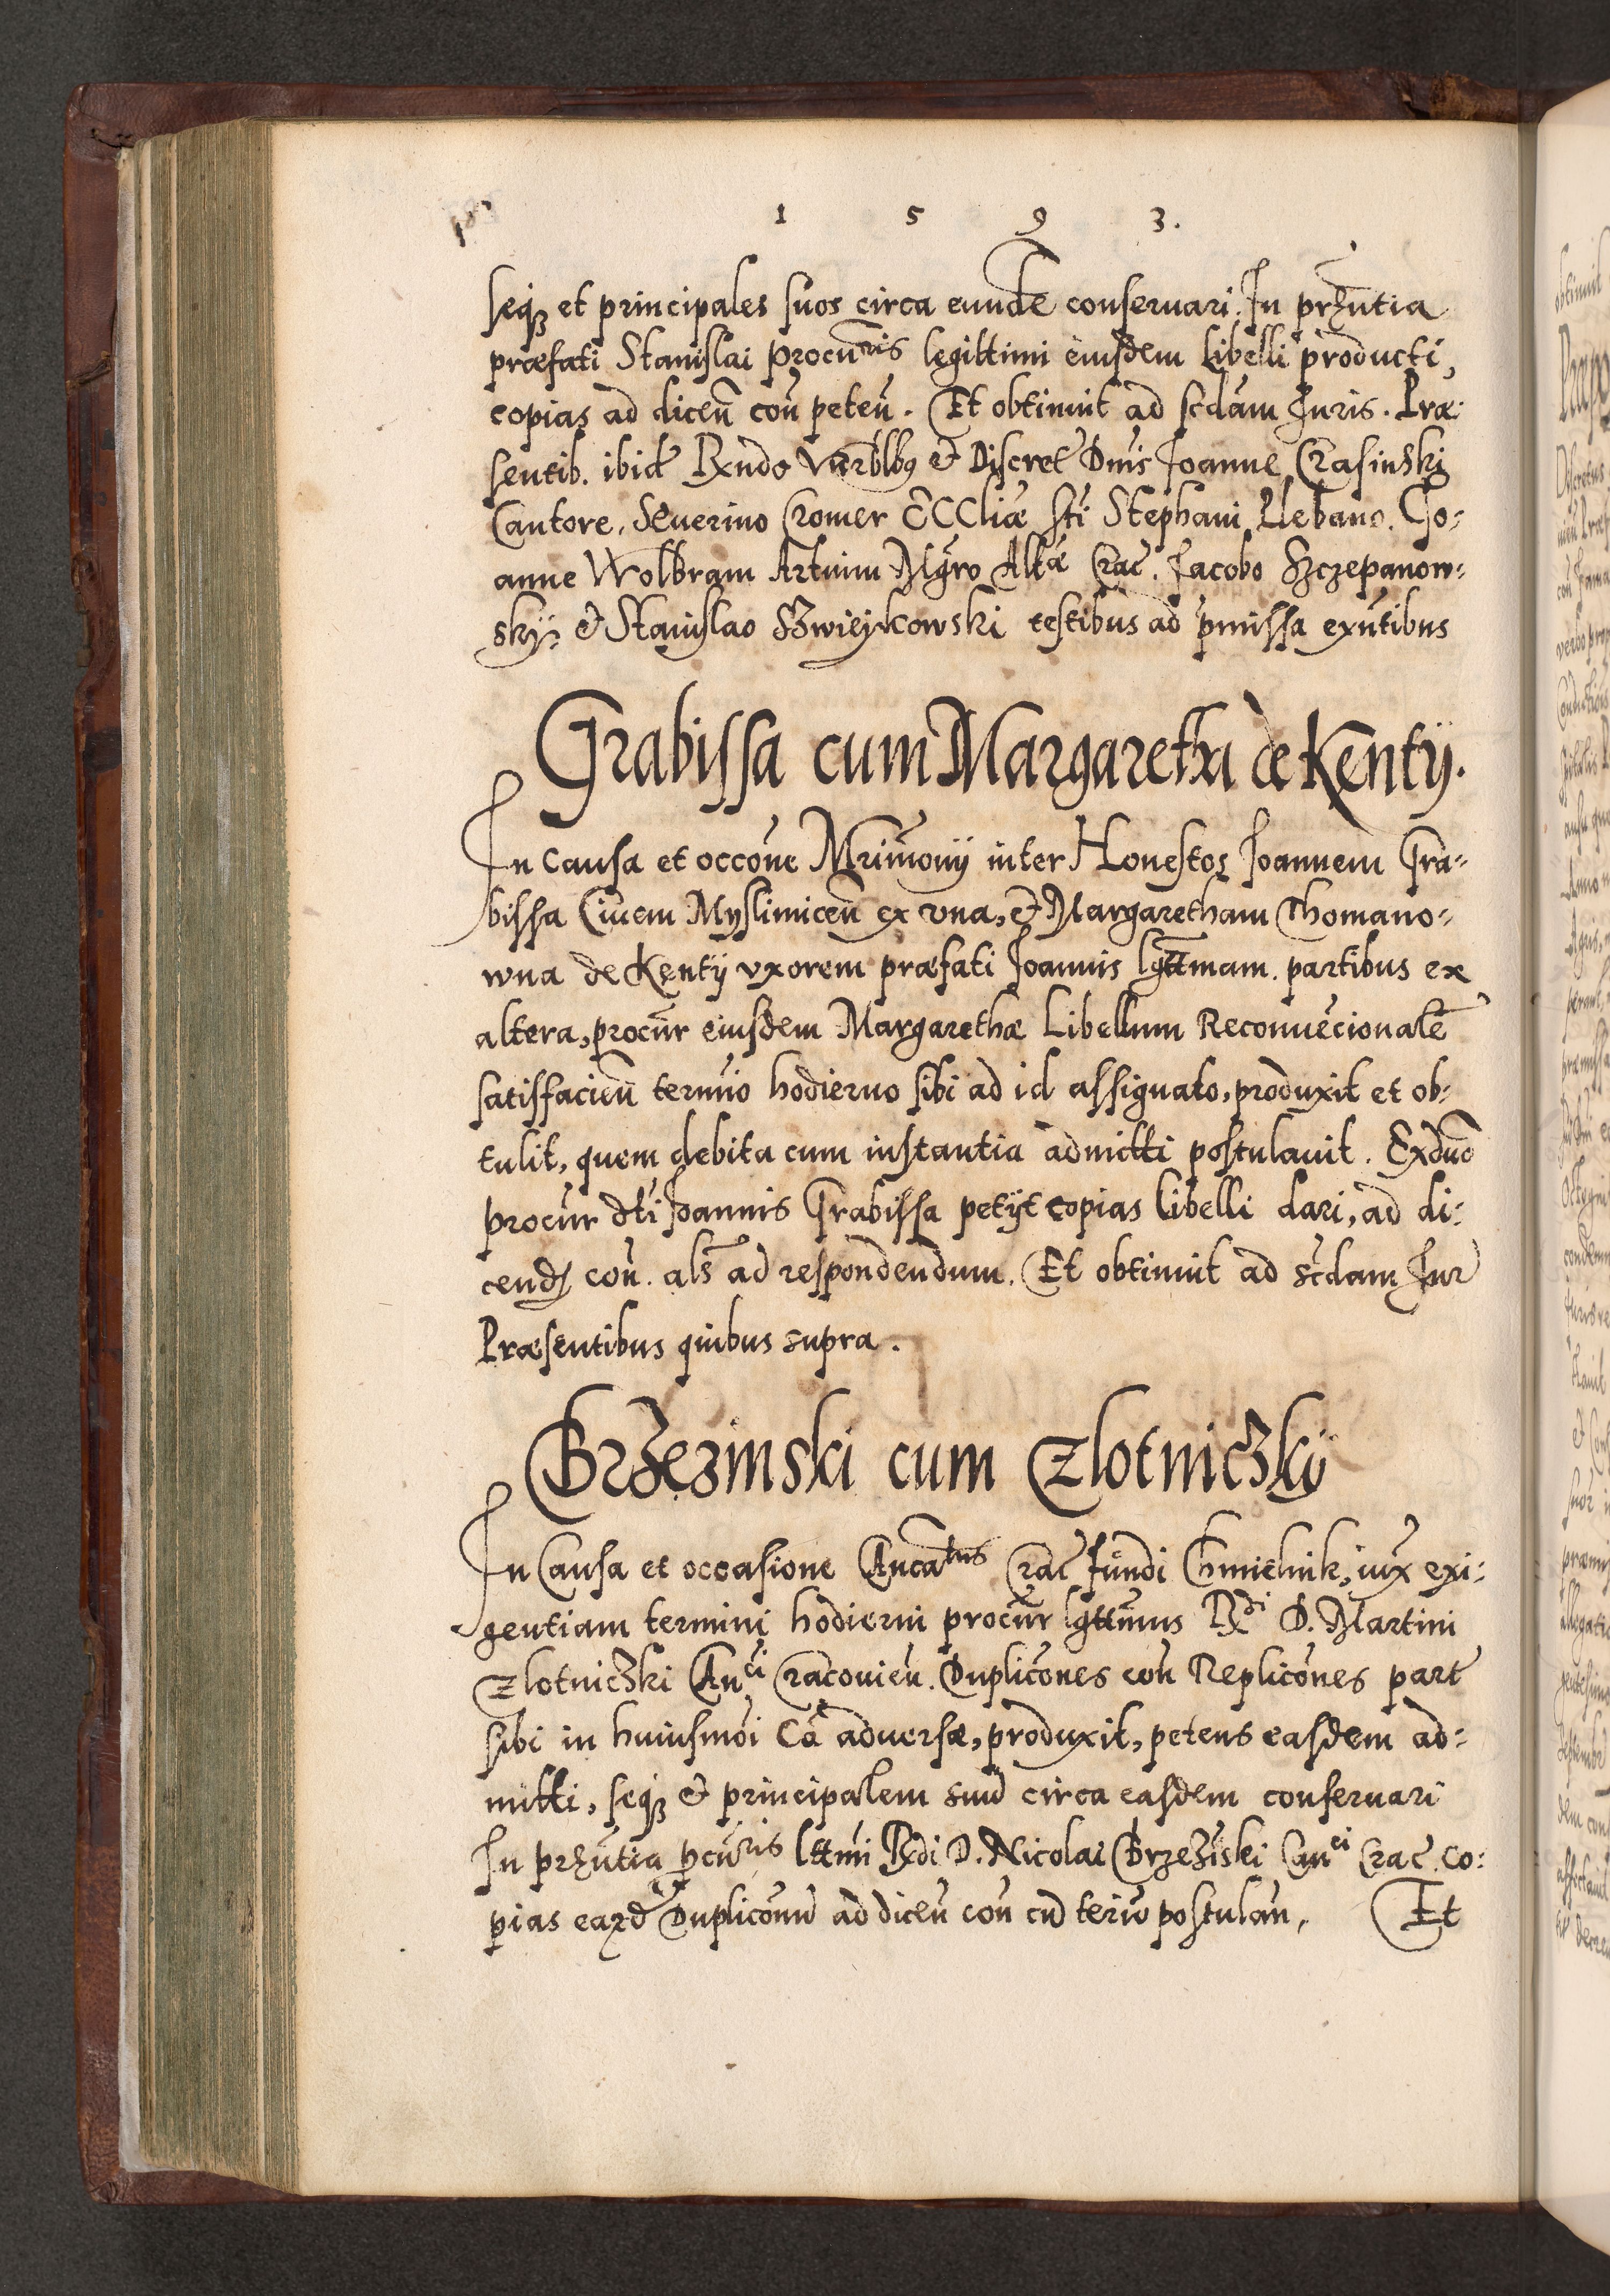 1 5 9 3.
seqȝ et principales suos circa eundē conseruari. In prȝñtia
præfati Stanislai procuris legittimi eiusdem Libelli producti,
copias ad diceñ coñ peteñ. Et obtinuit ad scdam Iuris. Præ:
sentib. ibid Rxndo Vnrblbȝ & Discret Dnis Joanne Crasinski
Cantore, Seuerino Cromer ECCliæ sti Stephani Plebano. Jo:
anne Wolbram Artium Mgro Altæ Crac. Jacobo Szczepanow:
skÿ: & Stanislao Szwieykowski testibus ad pmissa exñtibus
Grabissa cum Margaretha de Kentÿ.
In Causa et occoñe Mrimonÿ inter Honestos Joannem Gra:
bissa Ciuem Myslimiceñ ex vna, & Margaretham Thomano:
wna de Kentÿ vxorem præfati Joannis lgttmam. partibus ex
altera, procur eiusdem Margarethæ Libellum Reconuēcionalē
satisfacieñ termio hodierno sibi ad id assignato, produxit et ob:
tulit, quem debita cum instantia admitti postulauit. Exduo
procur dti Joannis Grabissa petÿt copias libelli dari, ad di:
cend coñ. als ad respondendum. Et obtinuit ad scdam Iur
Præsentibus quibus supra.
Brzezinski cum Zlotniczkÿ
In Causa et occasione Cancatus Crac fundi Chmielnik, iux exi:
gentiam termini hodierni procur lgttimus Rxdi D. Martini
Zlotniczki Canci Cracouieñ. Duplicoñes coñ Replicoñes part
sibi in huiusmoi Cā aduersæ, produxit, petens easdem ad:
mitti, seqȝ & principalem suū circa easdem conseruari
In prȝñtia pcuris lttmi Rxdi D. Nicolai Brzeziski Canci Crac. co:
pias earȝd Duplicoñu ad diceñ coñ cū teriō postulañ, Et